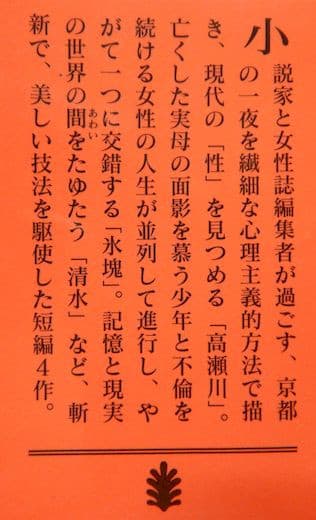 小説家と女性誌編集者が過ごす、京都
の一夜を繊細な心理主義的方法で描
き、現代の「性」を見つめる「高瀬川」。
亡くした実母の面影を慕う少年と不倫を
続ける女性の人生が並列して進行し、や
がて一つに交錯する「氷塊」。記憶と現実
の世界の間をたゆたう「清水」など、斬
あわい
新で、美しい技法を駆使した短編4作。